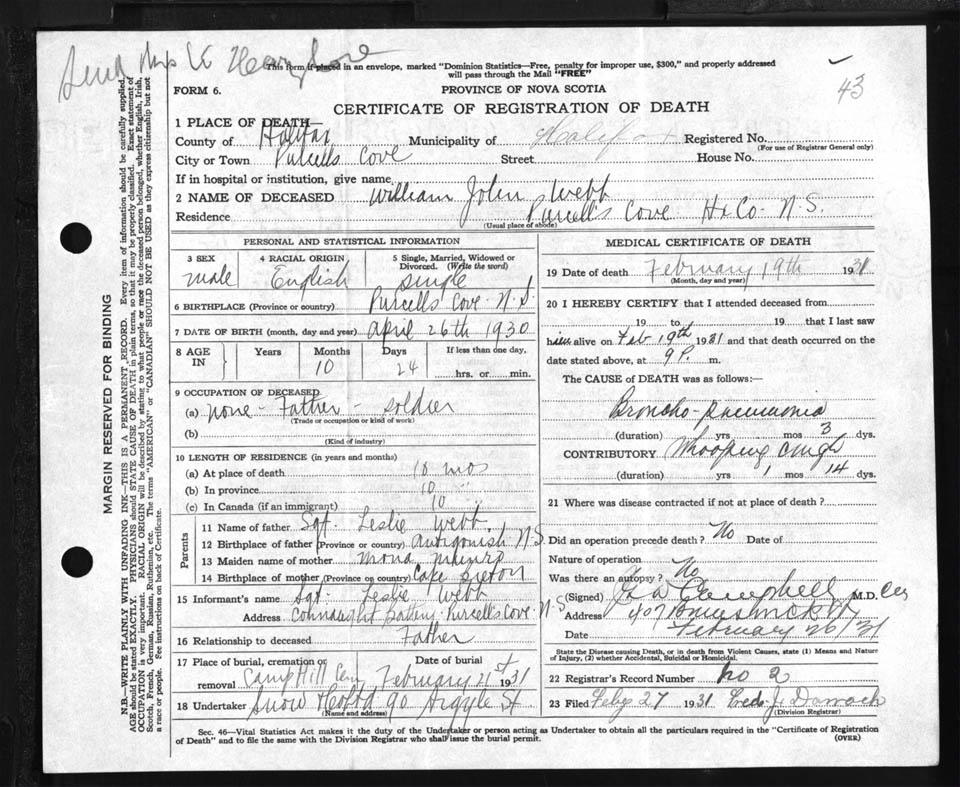 Send this to Herring Cove
43
This form if placed in an envelope, marked "Dominion Statistics—Free, penalty for improper use, $300," and properly addressed
will pass through the Mail "FREE"
FORM 6.
PROVINCE OF NOVA SCOTIA
CERTIFICATE OF REGISTRATION OF DEATH
1 PLACE OF DEATH—
County of Halifax Municipality of Halifax Registered No.
(For use of Registrar General only)
City or Town Purcells Cove Street House No.
If in hospital or institution, give name
2 NAME OF DECEASED William John Webb
Residence Purcell's Cove Hx Co. N.S.
(Usual place of abode)
PERSONAL AND STATISTICAL INFORMATION
3 SEX 4 RACIAL ORIGIN 5 Single, Married, Widowed or
Divorced. (Write the word)
male English Single
6 BIRTHPLACE (Province or country) Purcells Cove. N.S.
7 DATE OF BIRTH (month, day and year) April 26th 1930
8 AGE IN Years Months Days If less than one day,
10 24
hrs. or min.
9 OCCUPATION OF DECEASED
(a) none - Father - soldier
(Trade or occupation or kind of work)
(b)
(Kind of industry)
10 LENGTH OF RESIDENCE (in years and months)
(a) At place of death 10 mos
(b) In province 10 "
(c) In Canada (if an immigrant) 10 "
Parents
11 Name of father Sgt. Leslie Webb
12 Birthplace of father (Province or country) Antigonish N.S.
13 Maiden name of mother Mona Munro
14 Birthplace of mother (Province or country) Cape Breton
15 Informant's name Sgt. Leslie Webb
Address Connaught Battery Purcell's Cove N.S
16 Relationship to deceased Father
17 Place of burial, cremation or removal Camp Hill Cem Date of burial February 21st 1931
18 Undertaker Snow & Co Ltd 90 Argyle St
(Name and address)
MEDICAL CERTIFICATE OF DEATH
19 Date of death February 19th 1931
(Month, day and year)
20 I HEREBY CERTIFY that I attended deceased from
19 to 19 that I last saw
him alive on Feb 19th 1931 and that death occurred on the
date stated above, at 9 P. m.
The CAUSE of DEATH was as follows:—
Broncho-pneumonia
(duration) yrs mos 3 dys.
CONTRIBUTORY Whooping cough
(duration) yrs 1 mos 14 dys.
21 Where was disease contracted if not at place of death?
Did an operation precede death? No Date of
Nature of operation
Was there an autopsy? No
(Signed) Campbell M.D.
Address 407 Brunswick St
Date February 20/31
State the Disease causing Death, or in death from Violent Causes, state (1) Means and Nature
of Injury, (2) whether Accidental, Suicidal or Homicidal.
22 Registrar's Record Number No 2
23 Filed Feby 27 1931 Fred. J. Darrach
(Division Registrar)
Sec. 46—Vital Statistics Act makes it the duty of the Undertaker or person acting as Undertaker to obtain all the particulars required in the "Certificate of Registration
of Death" and to file the same with the Division Registrar who shall issue the burial permit.
(OVER)
MARGIN RESERVED FOR BINDING
N.B.—WRITE PLAINLY WITH UNFADING INK—THIS IS A PERMANENT RECORD. Every item of information should be carefully supplied.
AGE should be stated EXACTLY. PHYSICIANS should STATE CAUSE OF DEATH in plain terms, so that it may be properly classified. Exact statement of
OCCUPATION is very important. RACIAL ORIGIN will be described by stating to what people or race the deceased person belonged, whether English, Irish,
Scotch, French, German, Russian, Ruthenian, etc. The terms "AMERICAN" or "CANADIAN" SHOULD NOT BE USED as they express citizenship but not
a race or people. See instructions on back of Certificate.